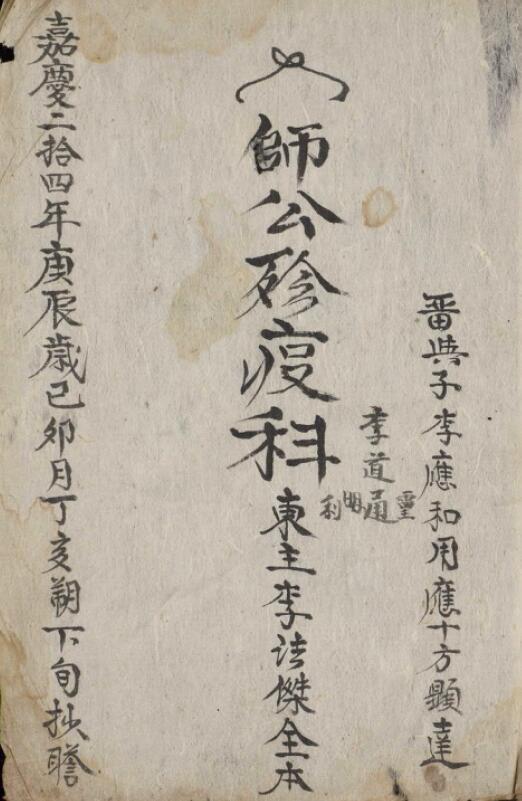 畨典子李應和用應十方顕達
李道通
靈明利
師公殄疫科
東主李法傑全本
嘉慶二拾四年庚辰歳己卯月丁亥朔下旬抄謄